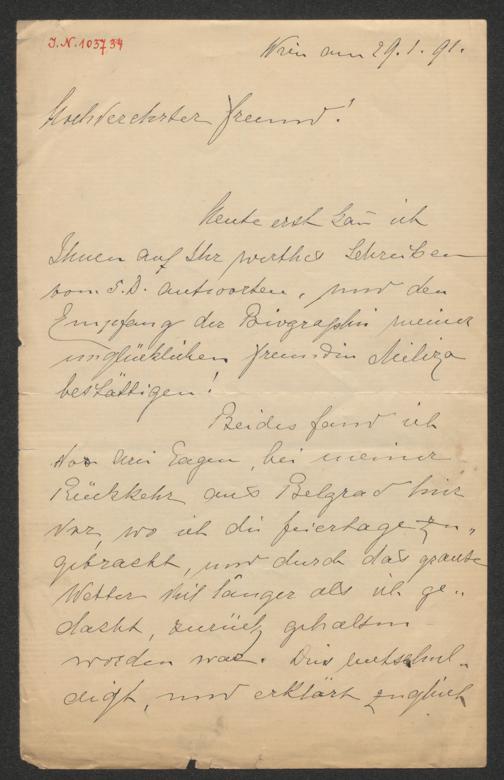 J.N. 103734
Wien am 29.1.91.
Hochverehrter Freund!
Heute erst kan̄ ich
Ihnen auf Ihr werthes Schreiben
vom 5. D. antworten, und den
Empfang der Biographie meiner
unglücklichen Freundin Miliza
bestättigen!
Beides fand ich
vor drei Tagen, bei meiner
Rückkehr aus Belgrad hier
vor, wo ich die Feiertage zu„
gebracht, und durch das
Wetter viel länger als ich ge„
dacht, zurück gehalten
worden war. Dies entschul„
digt, und erklärt zugleich